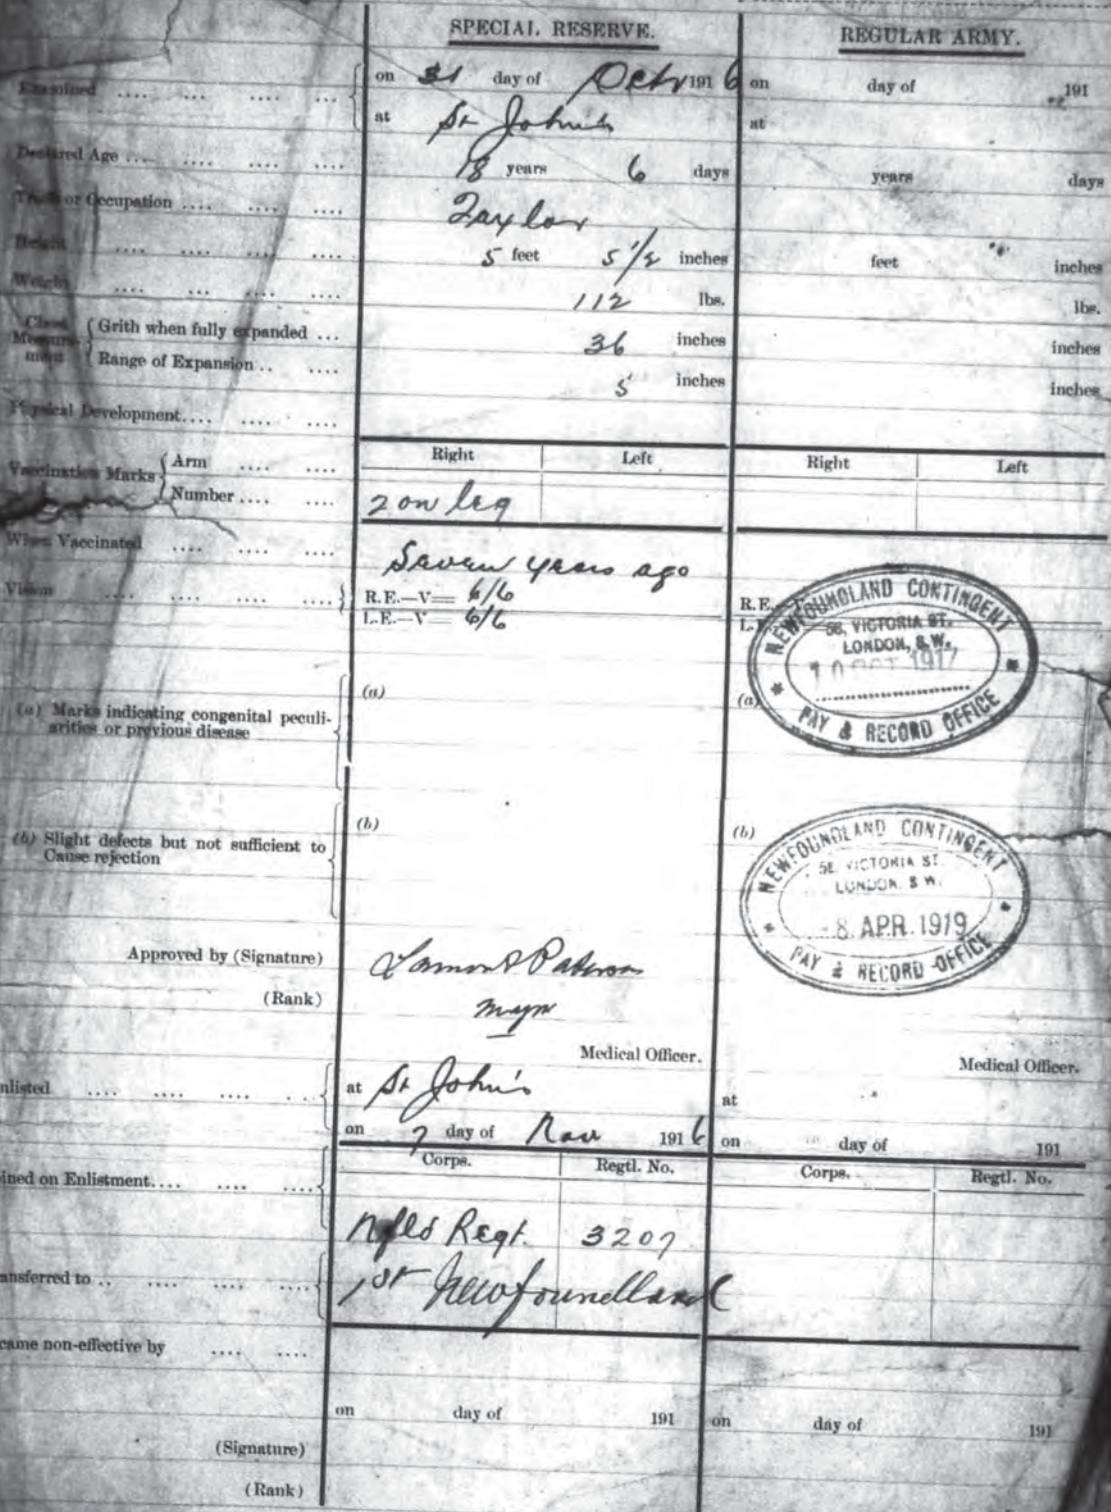 SPECIAL RESERVE. REGULAR ARMY.
Examined .... .... .... .... on 31 day of Octr 1916 on day of 191
at St John's at
Declared Age .... .... .... .... 18 years 6 days years days
Trade or Occupation .... .... .... Taylor
Height .... .... .... .... 5 feet 5 1/2 inches feet inches
Weight .... .... .... .... 112 lbs. lbs.
Chest Measurement Grith when fully expanded ... 36 inches inches
Range of Expansion .. .... 5 inches inches
Physical Development .... .... ....
Right Left Right Left
Vaccination Marks Arm .... ....
Number .... .... 2 on leg
When Vaccinated .... .... .... Seven years ago
Vision .... .... .... .... R.E.—V= 6/6 R.E.
L.E.—V= 6/6
NEWFOUNDLAND CONTINGENT
58, VICTORIA ST.
LONDON, S.W.
10 OCT 1917
PAY & RECORD OFFICE
(a) Marks indicating congenital peculi- (a) (a)
arities or previous disease
(b) Slight defects but not sufficient to (b) (b)
Cause rejection
NEWFOUNDLAND CONTINGENT
58, VICTORIA ST.
LONDON. S W.
-8. APR. 1919
PAY & RECORD OFFICE
Approved by (Signature) Lamont Paterson
(Rank) Major
Medical Officer. Medical Officer.
nlisted .... .... .... .... at St John's at
on 7 day of Nov 1916 on day of 191
Corps. Regtl. No. Corps. Regtl. No.
ined on Enlistment.... .... ....
Nfld Regt. 3207
ansferred to .. .... .... .... 1st Newfoundland
came non-effective by .... ....
on day of 191 on day of 191
(Signature)
(Rank)